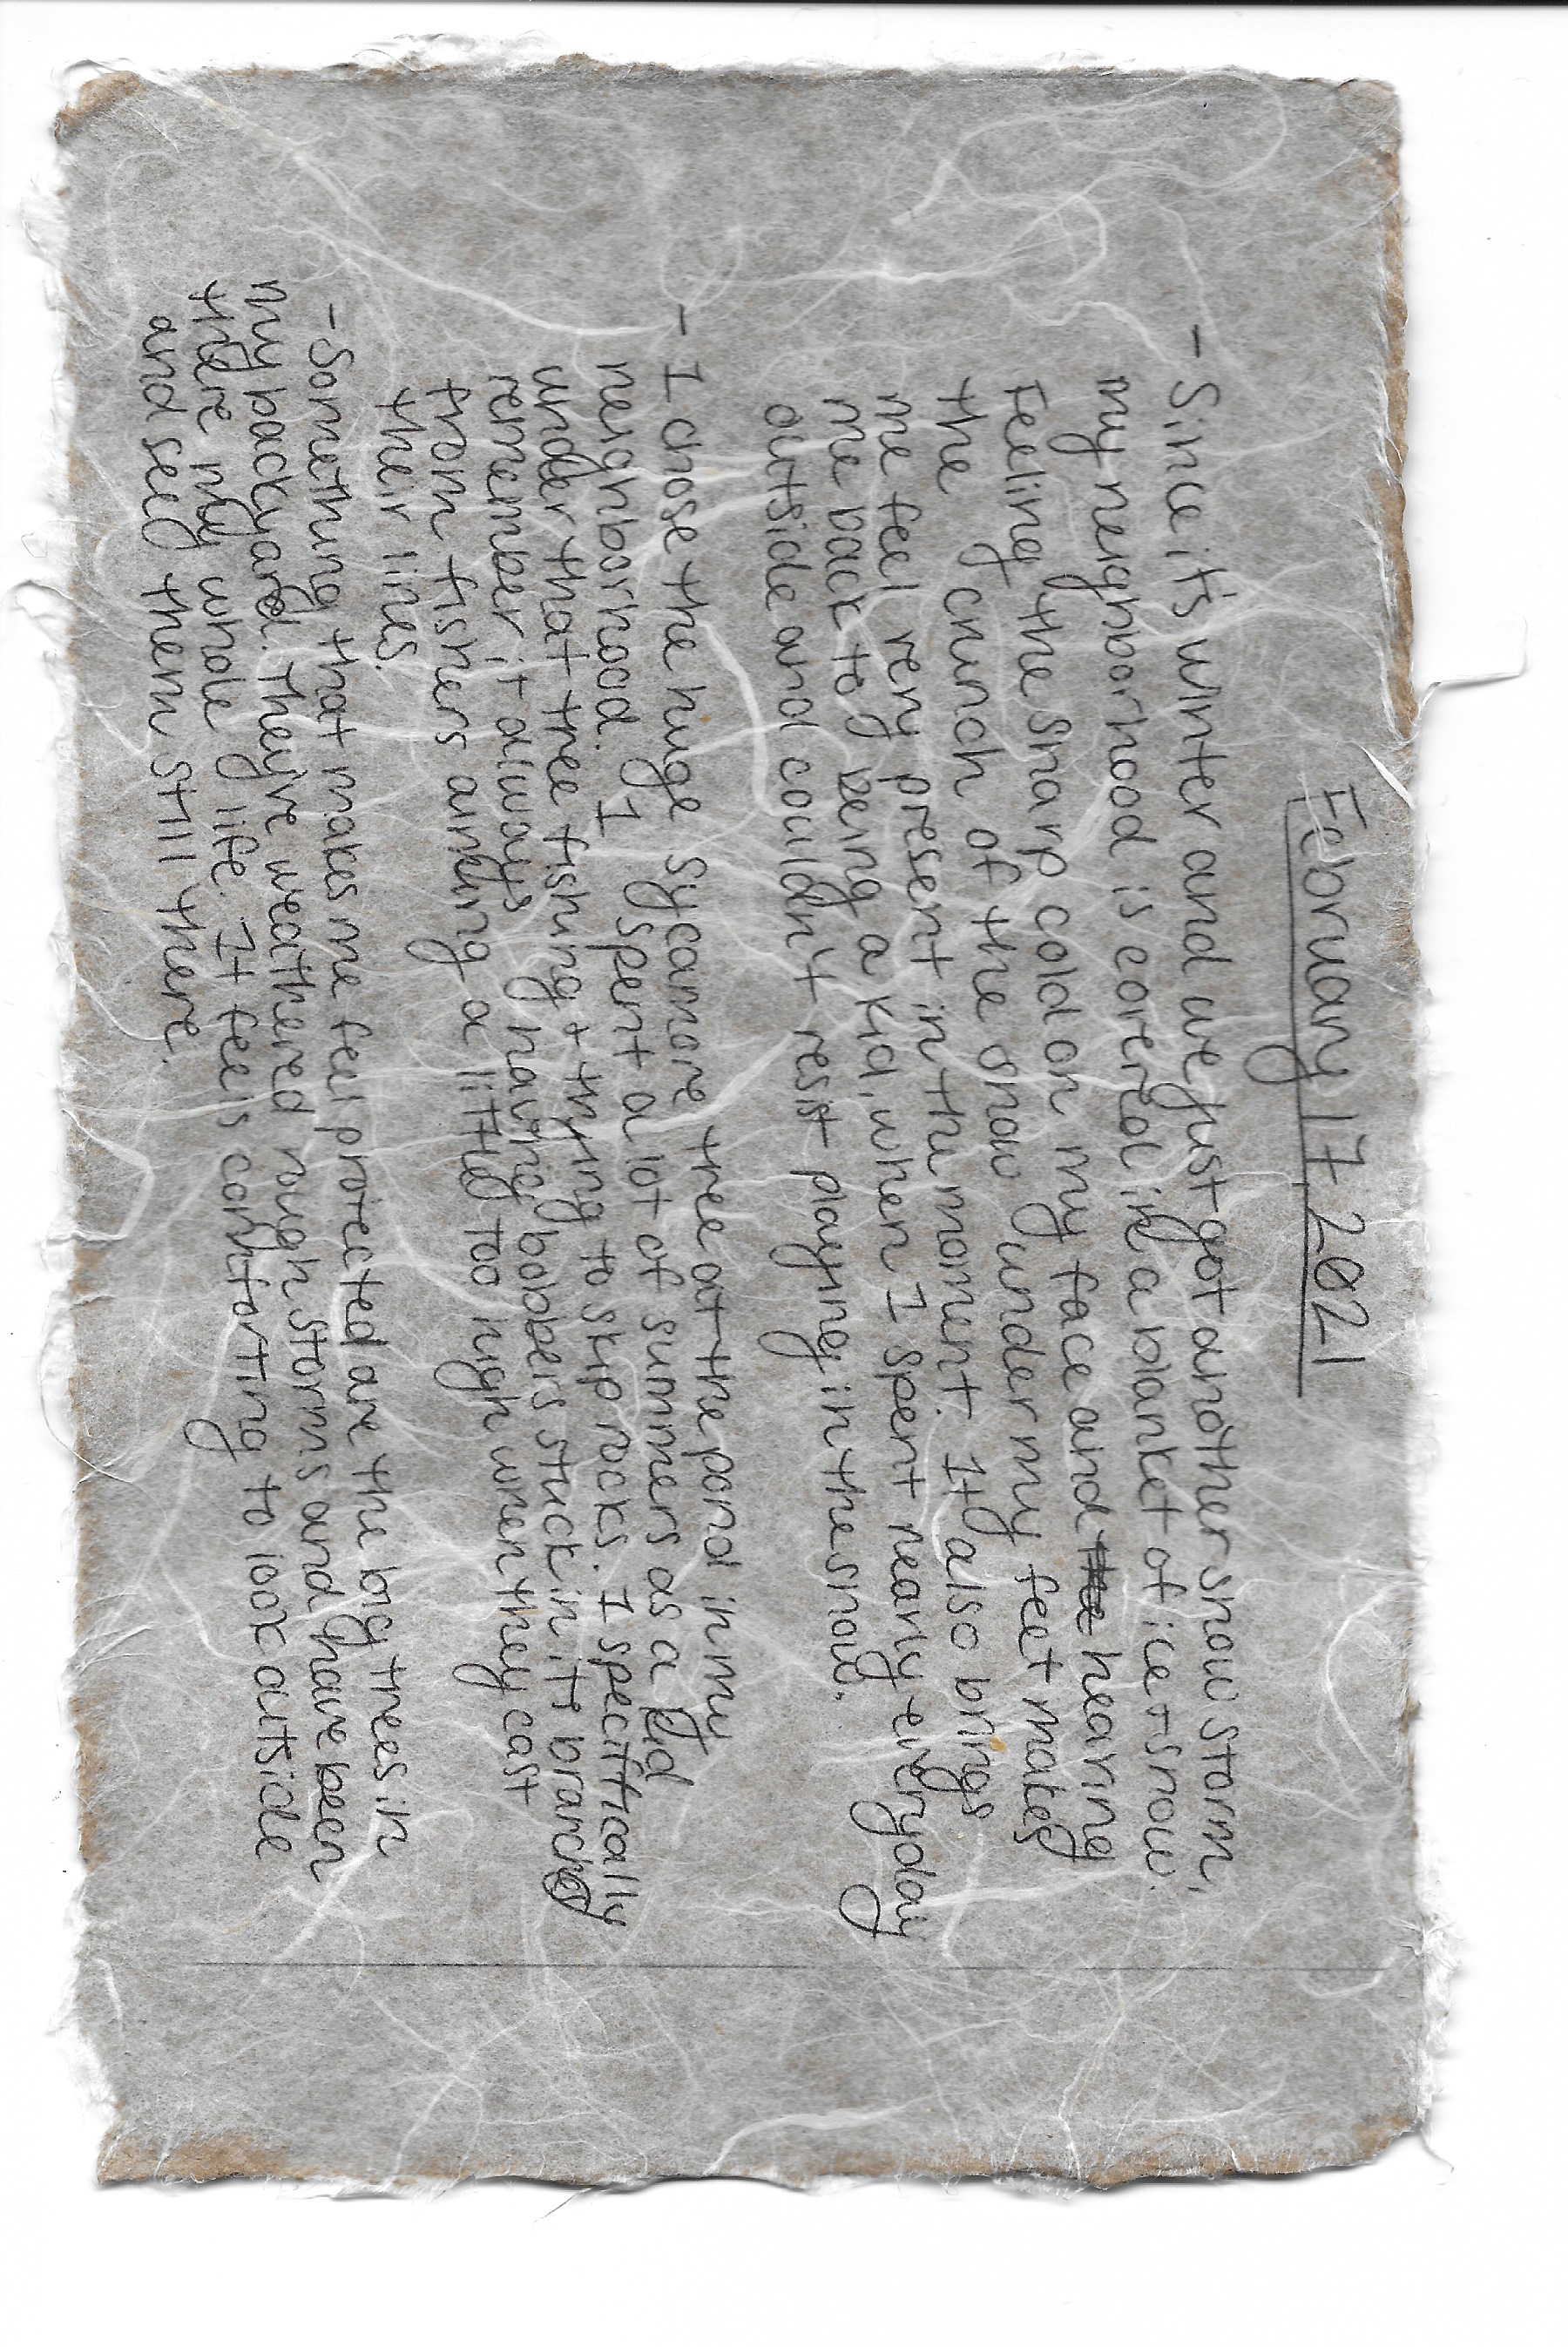 February 17 2021
- Since it's winter and we just got another snow storm,
my neighborhood is covered in a blanket of ice + snow.
Feeling the sharp cold on my face and the hearing
the crunch of the snow under my feet makes
me feel very present in the moment. It also brings
me back to being a kid, when I spent nearly everyday
outside and couldn't resist playing in the snow.
- I chose the huge sycamore tree at the pond in my
neighborhood. I spent a lot of summers as a kid
under that tree fishing + trying to skip rocks. I specifically
remember it always having bobbers stuck in it branches
from fishers aiming a little too high when they cast
their lines.
- Something that makes me feel protected are the big trees in
my backyard. They've weathered rough storms and have been
there my whole life. It feels comforting to look outside
and see them still there.